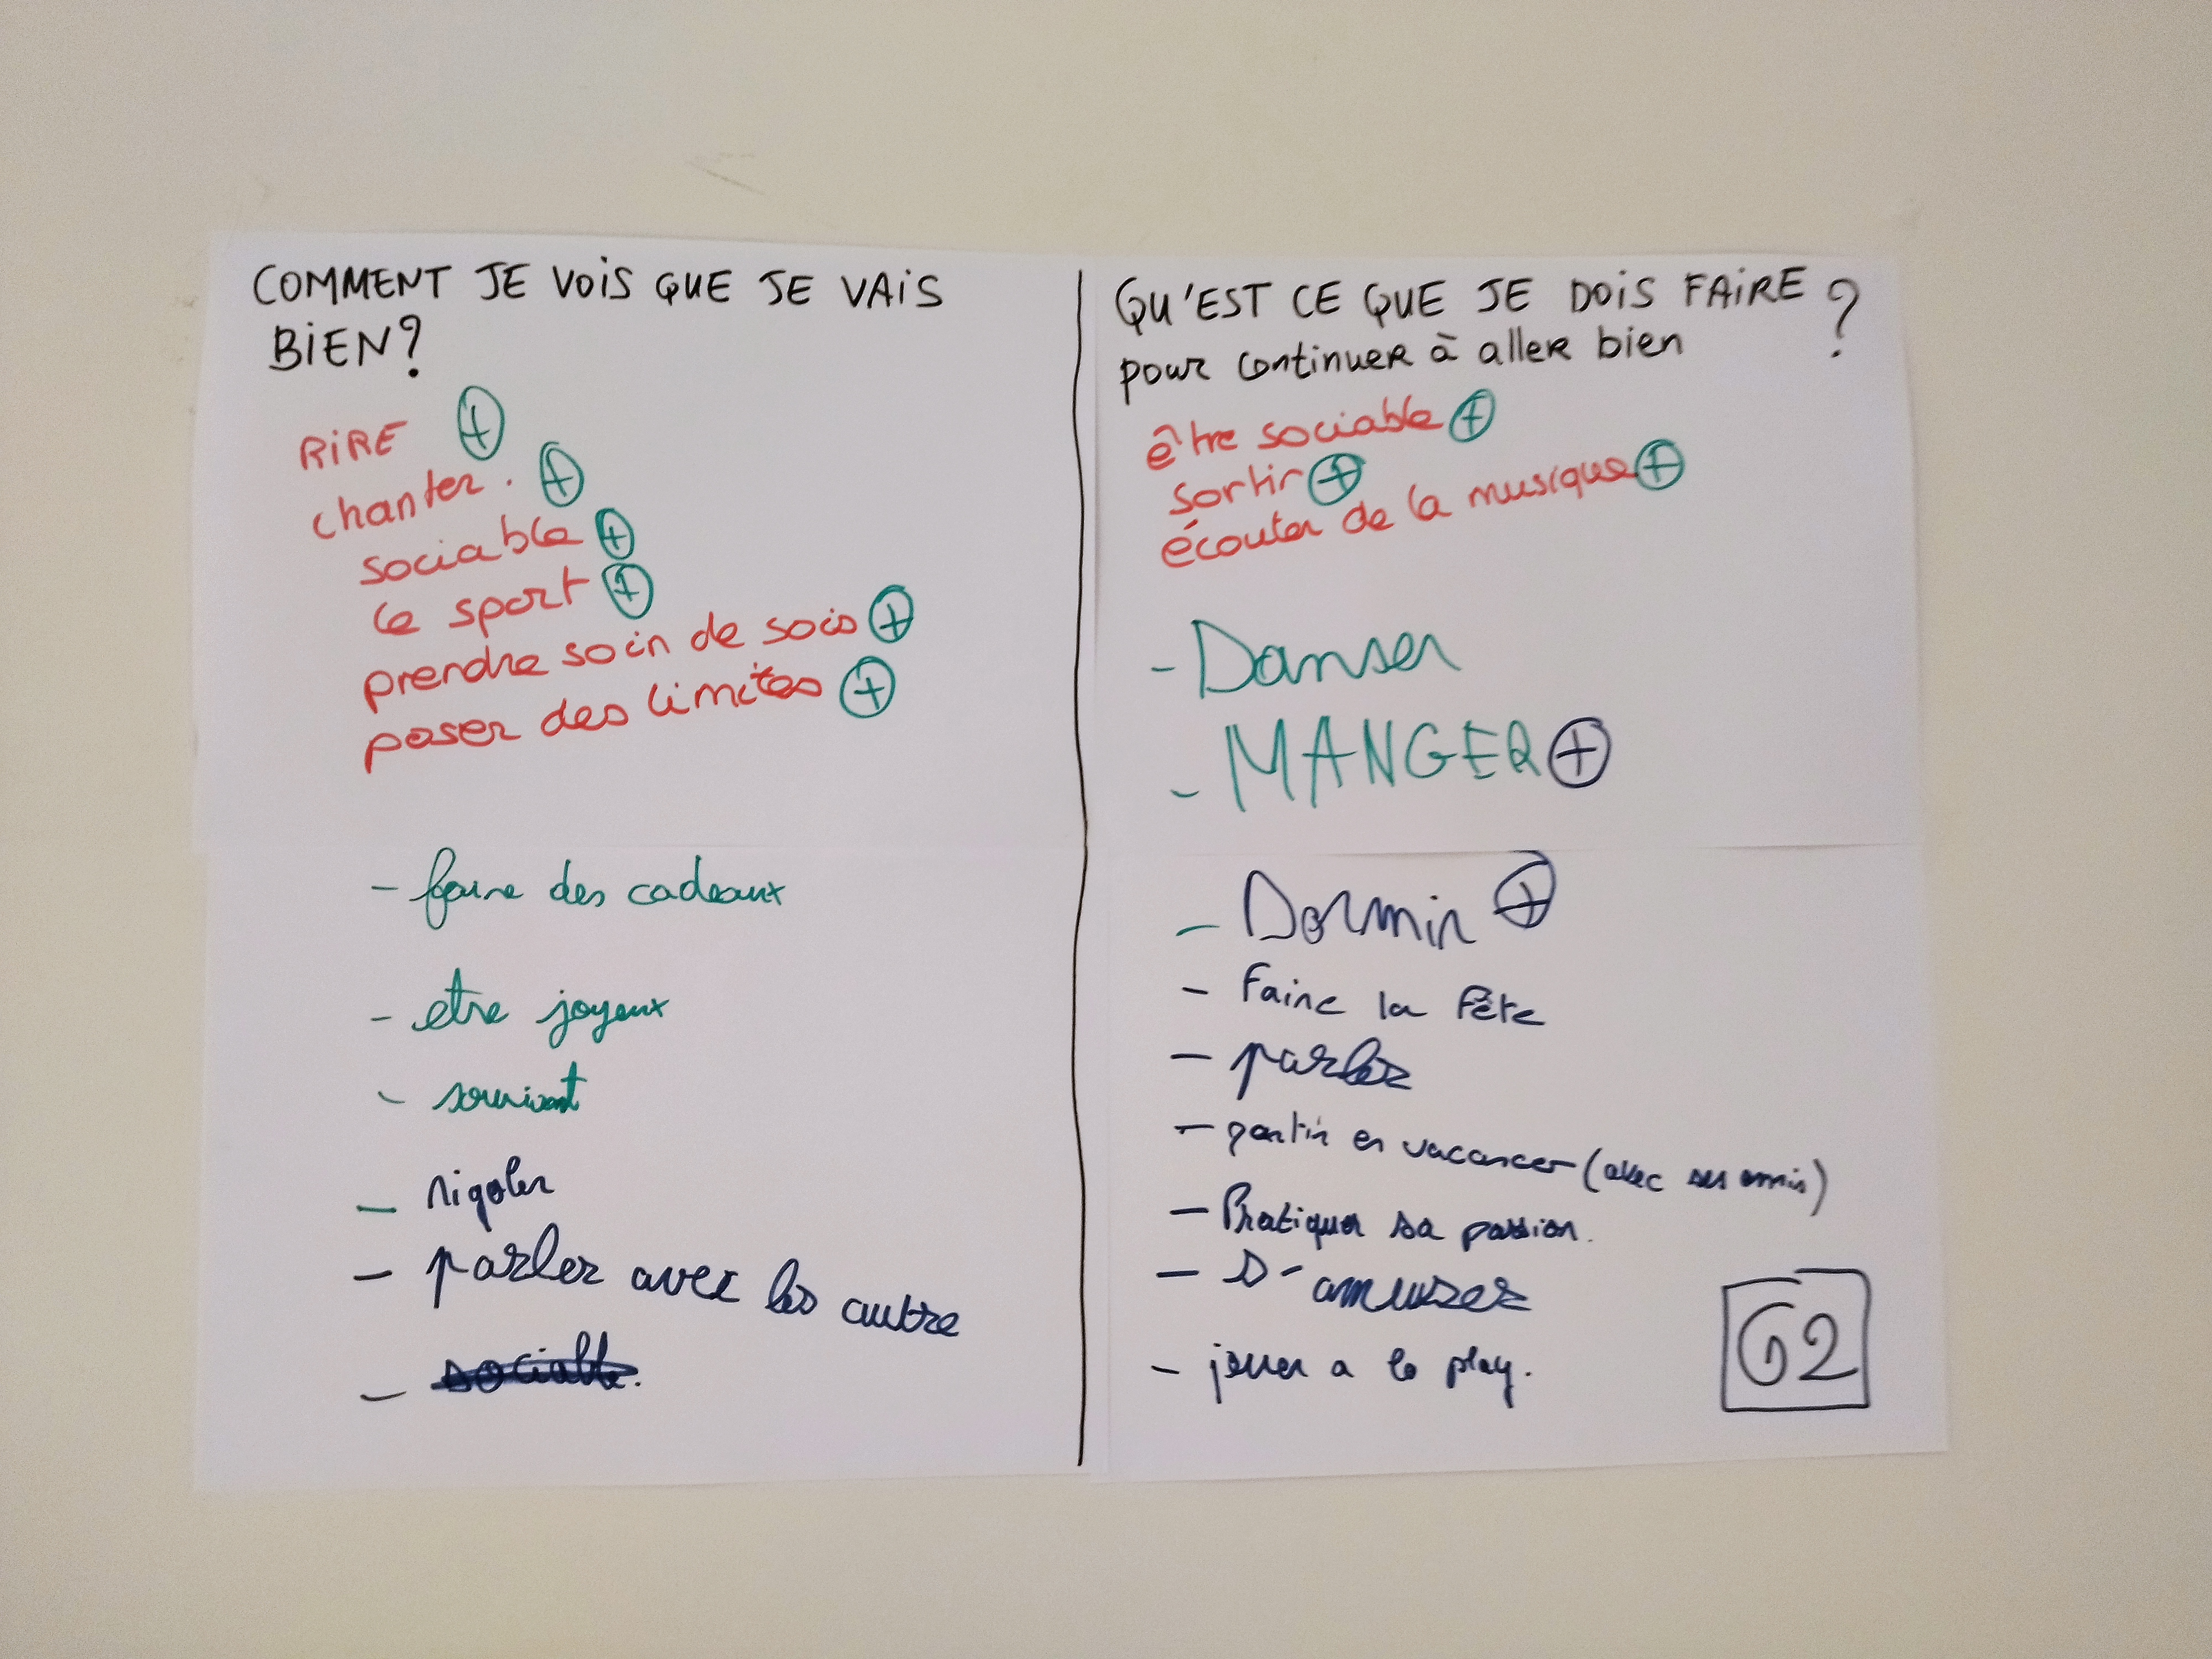 COMMENT JE VOIS QUE JE VAIS
BIEN?
RIRE +
chanter. +
sociable +
le sport +
prendre soin de sois +
poser des limites +
- faire des cadeaux
- etre joyeux
- souriant
- rigoler
- parler avec les autre
- sociable.
QU'EST CE QUE JE DOIS FAIRE ?
pour continuer à aller bien
être sociable +
sortir +
écouter de la musique +
- Danser
- MANGER +
- Dormir +
- Faire la Fête
- parler
- partir en vacances (avec ses amis)
- Pratiquer sa passion.
- S'amuser
- jouer a la play.
G2